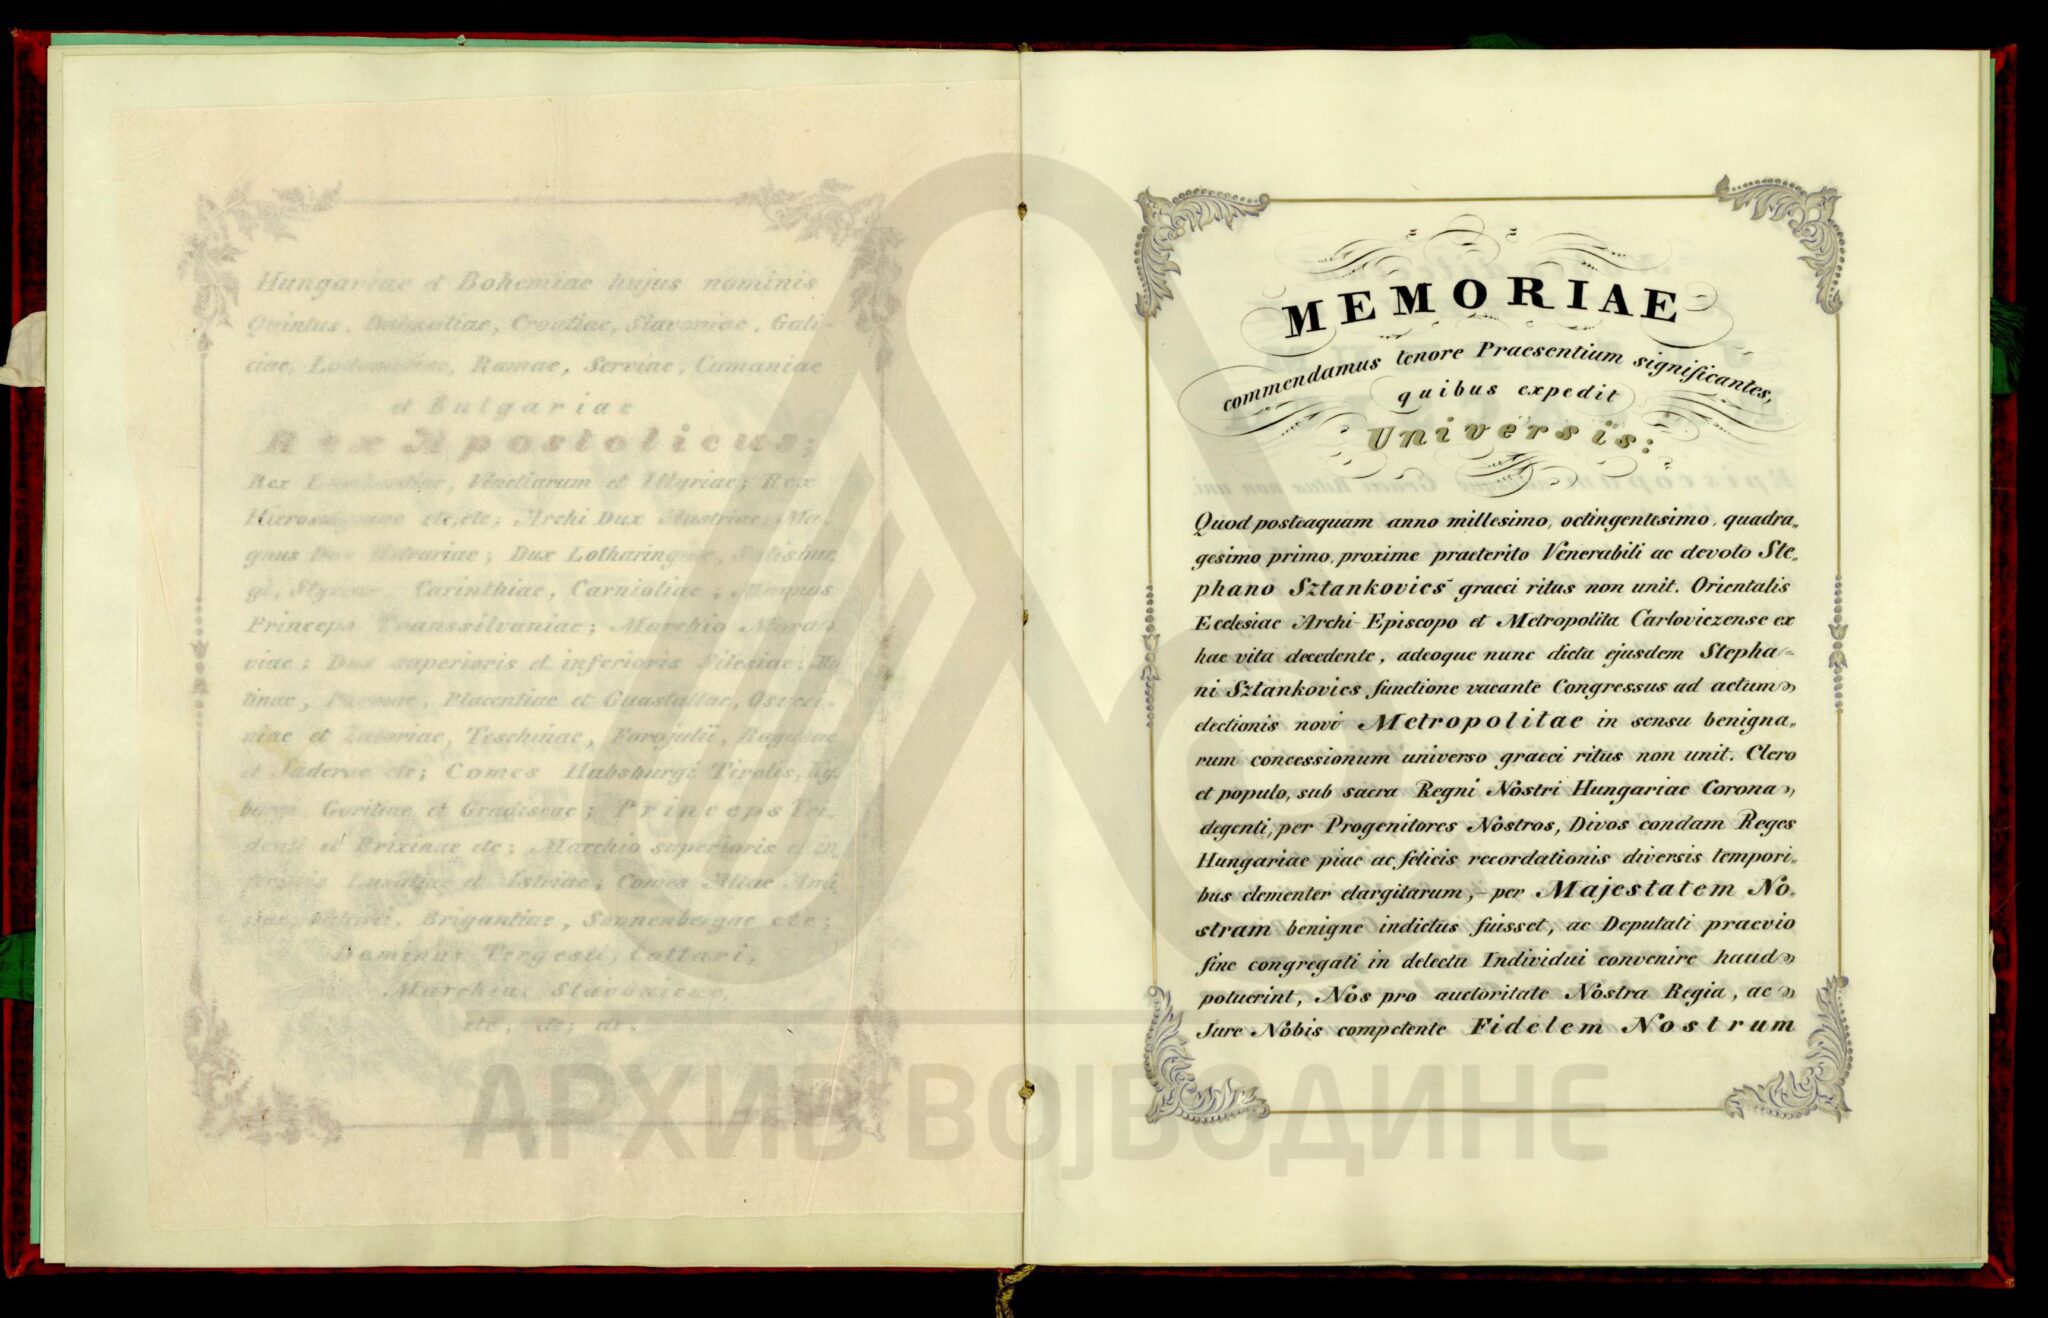 Hungariae et Bohemiae hujus nominis
Quintus, Dalmatiae, Croatiae, Slavoniae, Gali-
ciae, Lodomeriae, Ramae, Serviae, Cumaniae
et Bulgariae
Rex Apostolicus;
Rex Venetiarum et Illyriae; Rex
etc, etc; Archi Dux Austriae; Ma-
gnus Dux Dux Lotharingiae,
Carinthiae, Carnioliae; Magnus
Princeps Transsilvaniae; Marchio Mora„
viae; Dux superioris et inferioris Silesiae;
tinae, Placentiae et Guastallae,
et Zatoriae, Teschinae, Forojulii, Ragusae
etc; Comes Habsburgi Tirolis, Ky-
Goritiae et Gradiscae; Princeps Tri-
denti et Brixinae etc; Marchio superioris et in-
Lusatiae et Istriae; Comes Altae
Brigantiae, Sonnenbergae etc;
Dominus Tergesti, Cattari,
etc, etc; etc.
MEMORIAE
commendamus tenore Praesentium significantes,
quibus expedit
Universis:
Quod posteaquam anno millesimo, octingentesimo, quadra„
gesimo primo, proxime praeterito Venerabili ac devoto Ste„
phano Sztankovics graeci ritus non unit. Orientalis
Ecclesiae Archi-Episcopo et Metropolita Carloviczense ex
hac vita decedente, adeoque nunc dicta ejusdem Stepha-
ni Sztankovics functione vacante Congressus ad actum„
electionis novi Metropolitae in sensu benigna„
rum concessionum universo graeci ritus non unit. Clero
et populo, sub sacra Regni Nostri Hungariae Corona„
degenti, per Progenitores Nostros, Divos condam Reges
Hungariae piae ac felicis recordationis diversis tempori„
bus clementer elargitarum,- per Majestatem No„
stram benigne indictus fuisset, ac Deputati praevio
fine congregati in delectu Individui convenire haud„
potuerint, Nos pro auctoritate Nostra Regia, ac„
Jure Nobis competente Fidelem Nostrum
АРХИВ ВОЈВОДИНЕ